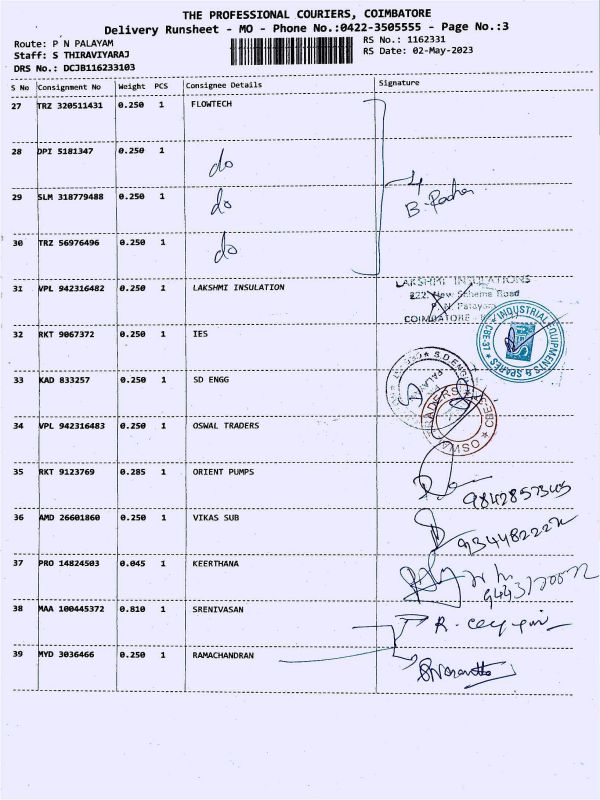 THE PROFESSIONAL COURIERS, COIMBATORE
Delivery Runsheet - MO - Phone No.:0422-3505555 - Page No.:3
Route: P N PALAYAM
RS No.: 1162331
Staff: S THIRAVIYARAJ
RS Date: 02-May-2023
DRS No.: DCJB116233103
S No Consignment No Weight PCS Consignee Details Signature
27 TRZ 320511431 0.250 1 FLOWTECH
28 DPI 5181347 0.250 1 do
29 SLM 318779488 0.250 1 do
30 TRZ 56976496 0.250 1 do
31 VPL 942316482 0.250 1 LAKSHMI INSULATION
LAKSHMI INSULATIONS
222, New Scheme Road
COIMBATORE
32 RKT 9067372 0.250 1 IES
INDUSTRIAL EQUIPMENTS & SPARES ★ CBE-37 ★
33 KAD 833257 0.250 1 SD ENGG
34 VPL 942316483 0.250 1 OSWAL TRADERS
35 RKT 9123769 0.285 1 ORIENT PUMPS
36 AMD 26601860 0.250 1 VIKAS SUB
37 PRO 14824503 0.045 1 KEERTHANA
38 MAA 100445372 0.810 1 SRENIVASAN
39 MYD 3036466 0.250 1 RAMACHANDRAN